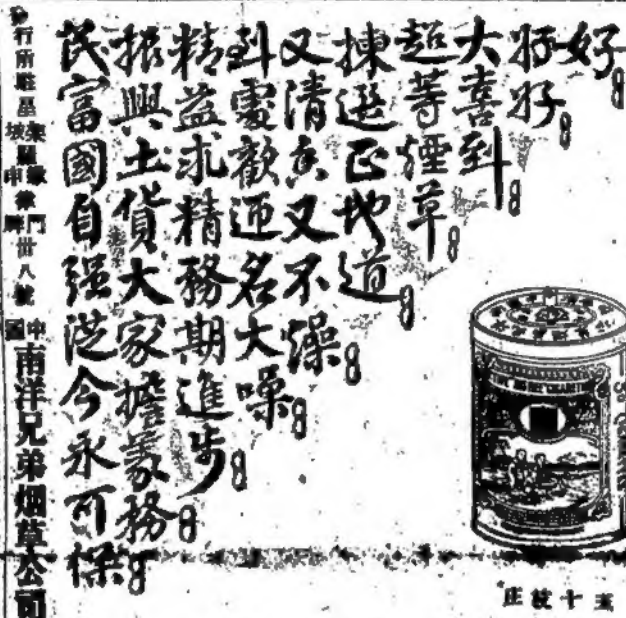 好
好好
大喜到
超等煙草
揀選正地道
又清香又不燥
到處歡迎名大噪
精益求精務期進步
振興土貨大家擔義務
民富國自強從今永可保
行所駐星架坡門牌卅八號
中國南洋兄弟烟草公司
五十枝庄